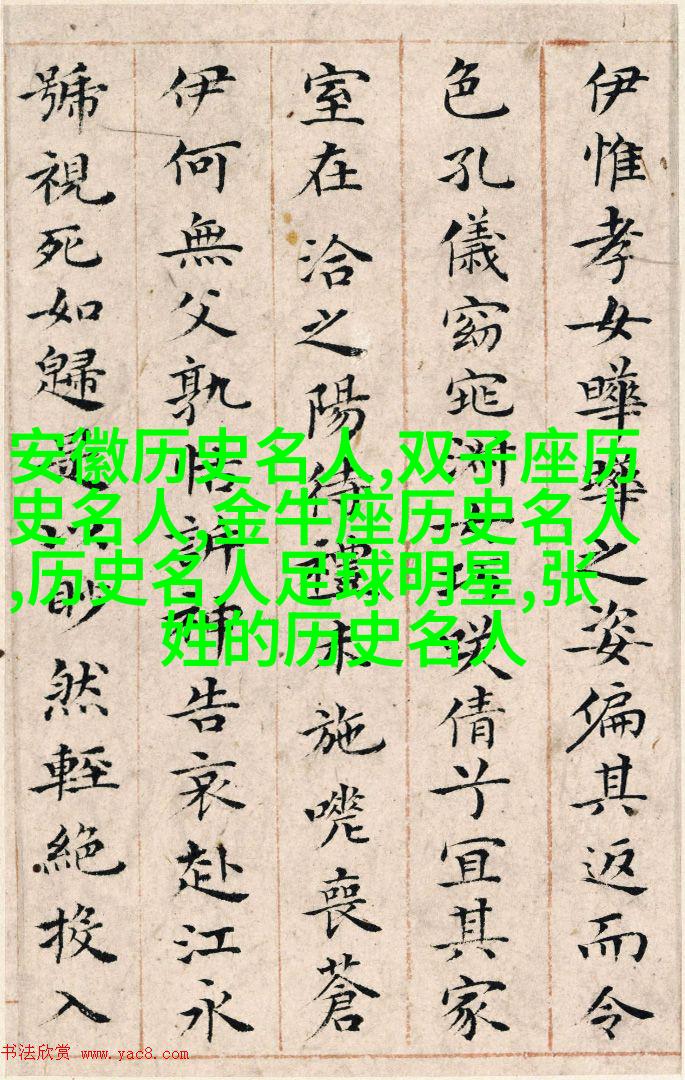 伊惟孝女曄曄之姿偏其返而令
色孔儀窈窕淑女巧咲倩兮冝其家
室在洽之陽待禮未施嗟喪蒼
伊何無父孰怙訴神告哀赴江永
號視死如歸是以眇然輕絕投入
安徽历史名人,双子座历
史名人,金牛座历史名人
,历史名人足球明星,张
姓的历史名人
书法欣赏 www.yac8.com